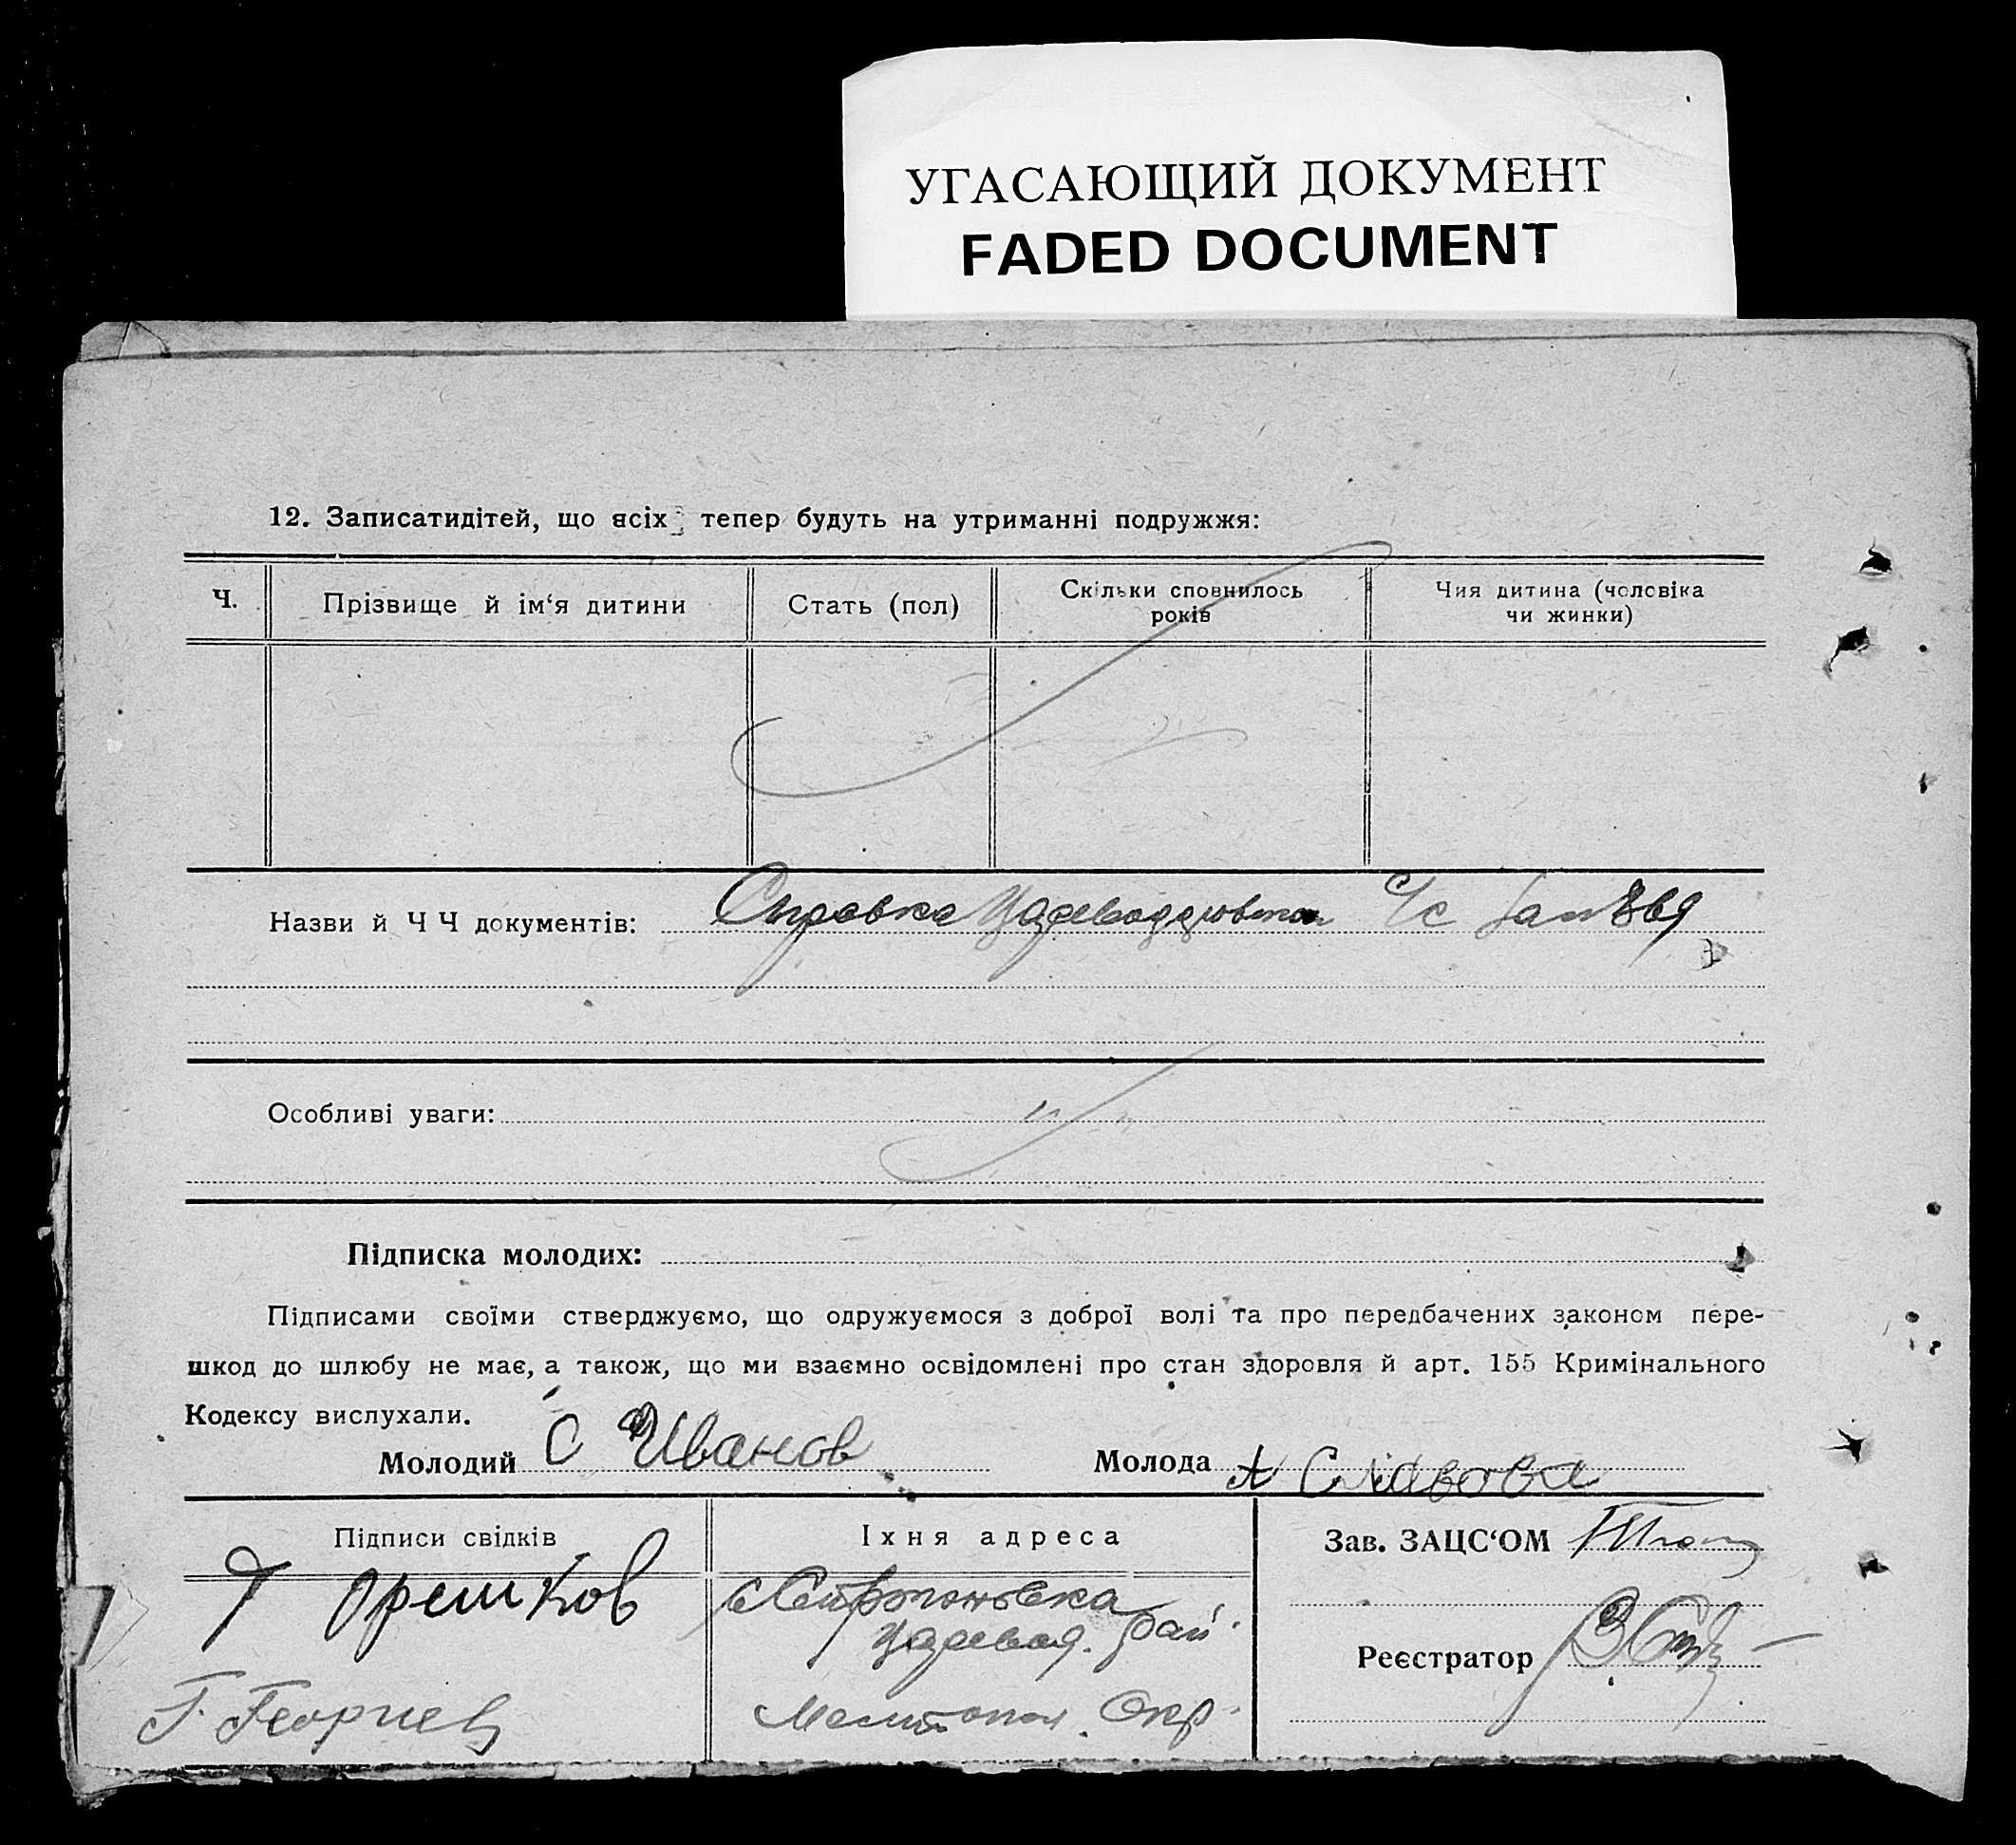 УГАСАЮЩИЙ ДОКУМЕНТ
FADED DOCUMENT
12. Записатидітей, що всіх тепер будуть на утриманні подружжя:
Ч.
Прізвище й ім‘я дитини
Стать (пол)
Скільки сповнилось
років
Чия дитина (чоловіка
чи жинки)
Назви й Ч Ч документів: Справка С/с
Особливі уваги:
Підписка молодих:
Підписами своїми стверджуємо, що одружуємося з доброї волі та про передбачених законом пере-
шкод до шлюбу не має, а також, що ми взаємно освідомлені про стан здоровля й арт. 155 Кримінального
Кодексу вислухали.
Молодий С Иванов
Молода А Славова
Підписи свідків
Іхня адреса
Зав. ЗАЦС‘ОМ
Орешков
Рай.
Реєстратор
Г. Георгиев
Окр.